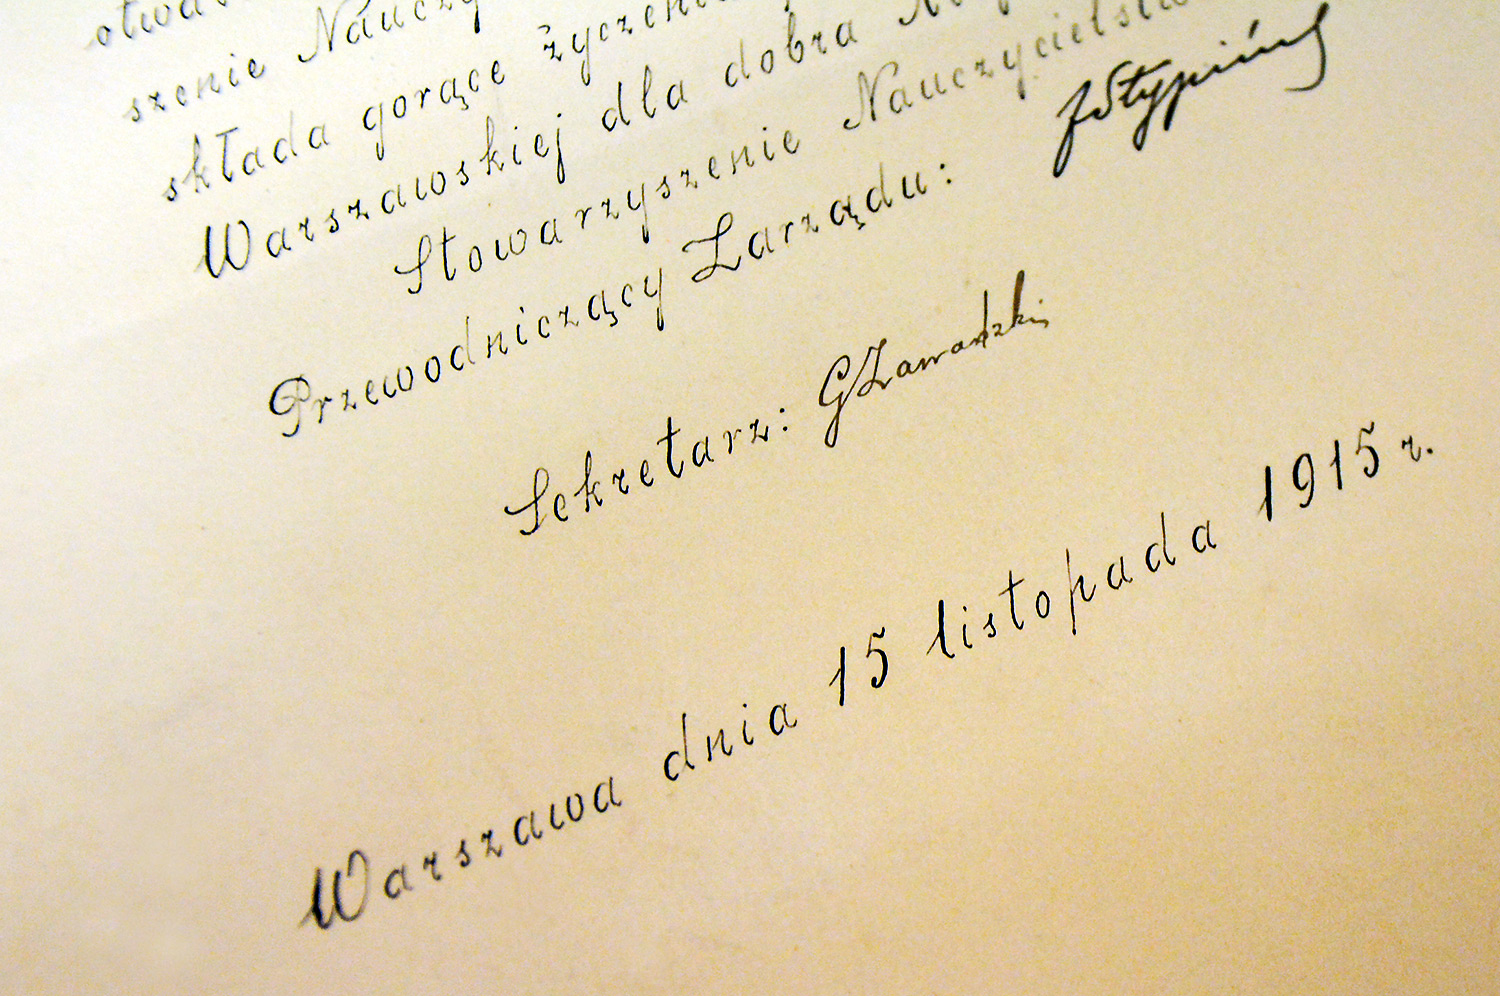 otwar
szenie Nauczy
składa gorące życzeni
Warszawskiej dla dobra
Stowarzyszenie Nauczycielstw
Przewodniczący Zarządu:
Sekretarz: GZawadzki
Warszawa dnia 15 listopada 1915 r.